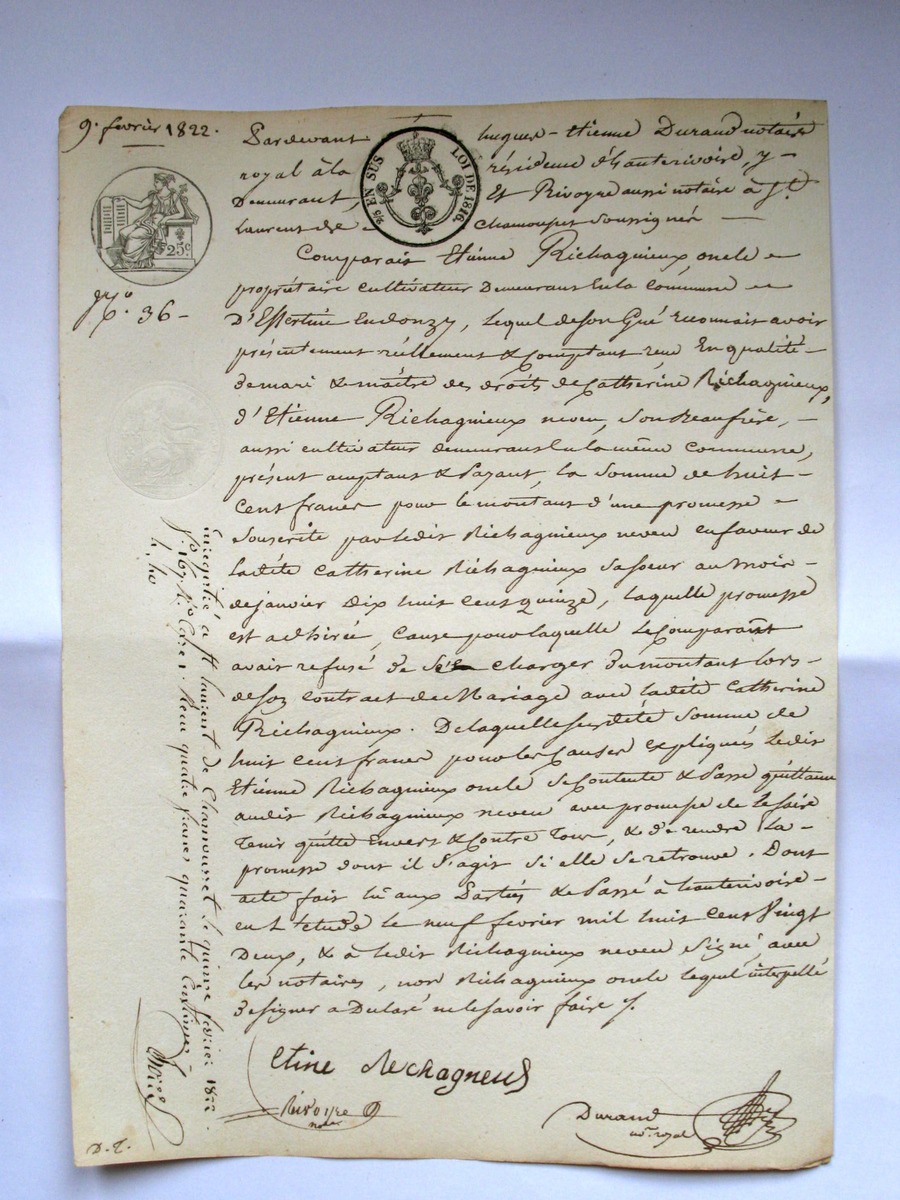 9. fevrier 1822.
Pardevant hugues-Etienne Durand notaire
royal à la résidence d'hauterivoire, y-
Demeurant, Et Rivoyre aussi notaire à St.
Laurent de Chamousset Soussignés
¼ EN SUS LOI DE 1816.
25c.
No. 36-
Comparait Etienne Richagnieux oncle
propriétaire cultivateur Demeurant En la Commune
D'Essertine En donzy, lequel de son Gré reconnait avoir
présentement réellement & Comptant reçu En qualité-
de mari & maître des droits de Catherine Richagnieux,
d'Etienne Richagnieux neveu, son Beaufrère,
aussi cultivateur demeurant En la même commune,
présent acceptant & Payant, la somme de huit-
Cent francs pour le montant d'une promesse
Souscrite par ledit Richagnieux neveu en faveur de
ladite Catherine Richagnieux sa soeur au mois-
de janvier Dix huit cent quinze, laquelle promesse
est adhirée, Cause pour laquelle le Comparant
avait refusé de se charger du montant lors-
de son contract de Mariage avec ladite Catherine
Richagnieux. De laquelle susdite somme de
huit cent francs pour les Causes expliquées ledit
Etienne Richagnieux oncle se Contente & Passe quittance
audit Richagnieux neveu avec promesse de le faire
Tenir quitte Envers & Contre Tous, & de rendre la-
promesse dont il s'agit si elle se retrouve. Dont
acte fait lû aux Parties & Passé à hauterivoire-
en l'etude le neuf fevrier mil huit cent Vingt
Deux, & à ledit Richagnieux neveu signé avec
les notaires, non Richagnieux oncle lequel interpellé
de signer a Déclaré ne le savoir faire
Etine Rechagneus
Rivoyre
notre
Durand
no. royal
Enregistré à St laurent de Chamousset le quinze fevrier 1822
fo. 167 Ro. Case 1. Reçu quatre francs quarante Centimes
4,,40
D. T.